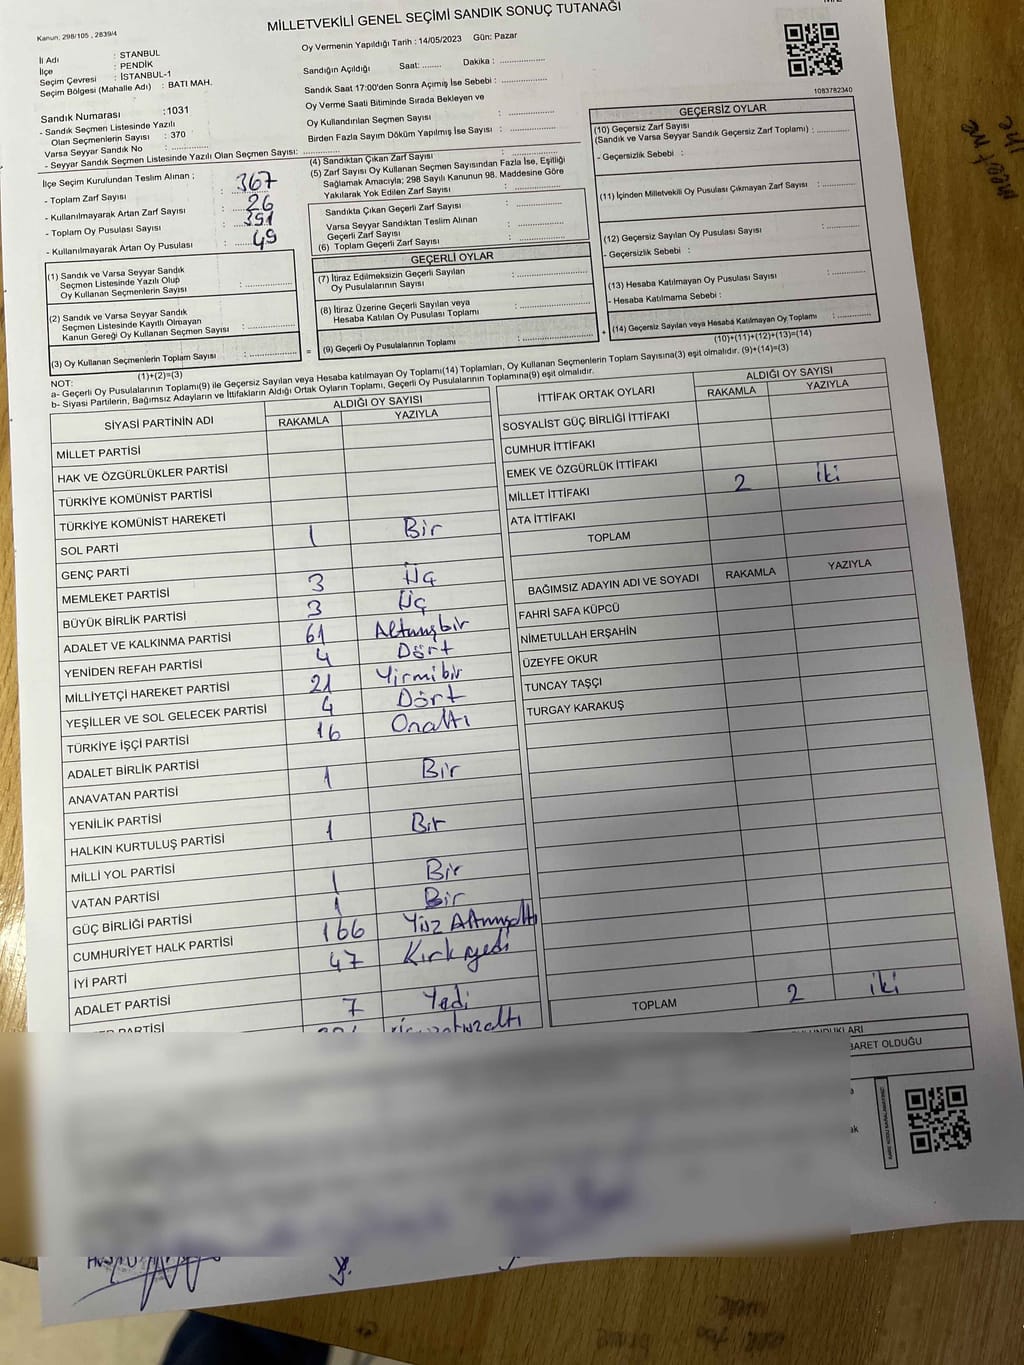 MİLLETVEKİLİ GENEL SEÇİMİ SANDIK SONUÇ TUTANAĞI
Kanun: 298/105 , 2839/4
İl Adı : STANBUL
İlçe : PENDİK
Seçim Çevresi : İSTANBUL-1
Seçim Bölgesi (Mahalle Adı) : BATI MAH.
Oy Vermenin Yapıldığı Tarih : 14/05/2023 Gün: Pazar
Sandığın Açıldığı Saat: ........ Dakika : ..................
Sandık Saat 17:00'den Sonra Açımış İse Sebebi : ..................
Oy Verme Saati Bitiminde Sırada Bekleyen ve
Oy Kullandırılan Seçmen Sayısı : ..................
Birden Fazla Sayım Döküm Yapılmış İse Sayısı : ..................
1083782340
Sandık Numarası :1031
- Sandık Seçmen Listesinde Yazılı
Olan Seçmenlerin Sayısı : 370
Varsa Seyyar Sandık No : ..................
- Seyyar Sandık Seçmen Listesinde Yazılı Olan Seçmen Sayısı: ..................
İlçe Seçim Kurulundan Teslim Alınan ;
- Toplam Zarf Sayısı : 367
- Kullanılmayarak Artan Zarf Sayısı : 26
- Toplam Oy Pusulası Sayısı : 391
- Kullanılmayarak Artan Oy Pusulası : 49
(1) Sandık ve Varsa Seyyar Sandık
Seçmen Listesinde Yazılı Olup
Oy Kullanan Seçmenlerin Sayısı : ..................
(2) Sandık ve Varsa Seyyar Sandık
Seçmen Listesinde Kayıtlı Olmayan
Kanun Gereği Oy Kullanan Seçmen Sayısı : ..................
(3) Oy Kullanan Seçmenlerin Toplam Sayısı : ..................
(1)+(2)=(3)
(4) Sandıktan Çıkan Zarf Sayısı : ..................
(5) Zarf Sayısı Oy Kullanan Seçmen Sayısından Fazla İse, Eşitliği
Sağlamak Amacıyla; 298 Sayılı Kanunun 98. Maddesine Göre
Yakılarak Yok Edilen Zarf Sayısı : ..................
Sandıkta Çıkan Geçerli Zarf Sayısı : ..................
Varsa Seyyar Sandıktan Teslim Alınan
Geçerli Zarf Sayısı : ..................
(6) Toplam Geçerli Zarf Sayısı : ..................
GEÇERLİ OYLAR
(7) İtiraz Edilmeksizin Geçerli Sayılan
Oy Pusulasının Sayısı : ..................
(8) İtiraz Üzerine Geçerli Sayılan veya
Hesaba Katılan Oy Pusulası Toplamı : ..................
= (9) Geçerli Oy Pusulalarının Toplamı : ..................
GEÇERSİZ OYLAR
(10) Geçersiz Zarf Sayısı
(Sandık ve Varsa Seyyar Sandık Geçersiz Zarf Toplamı) : ..................
- Geçersizlik Sebebi :
(11) İçinden Milletvekili Oy Pusulası Çıkmayan Zarf Sayısı : ..................
(12) Geçersiz Sayılan Oy Pusulası Sayısı : ..................
- Geçersizlik Sebebi :
(13) Hesaba Katılmayan Oy Pusulası Sayısı : ..................
- Hesaba Katılmama Sebebi :
+ (14) Geçersiz Sayılan veya Hesaba Katılmayan Oy Toplamı : ..................
(10)+(11)+(12)+(13)=(14)
NOT:
a- Geçerli Oy Pusulalarının Toplamı(9) ile Geçersiz Sayılan veya Hesaba katılmayan Oy Toplamı(14) Toplamları, Oy Kullanan Seçmenlerin Toplam Sayısına(3) eşit olmalıdır. (9)+(14)=(3)
b- Siyasi Partilerin, Bağımsız Adayların ve İttifakların Aldığı Ortak Oyların Toplamı, Geçerli Oy Pusulalarının Toplamına(9) eşit olmalıdır.
SİYASİ PARTİNİN ADI ALDIĞI OY SAYISI
RAKAMLA YAZIYLA
MİLLET PARTİSİ
HAK VE ÖZGÜRLÜKLER PARTİSİ
TÜRKİYE KOMÜNİST PARTİSİ
TÜRKİYE KOMÜNİST HAREKETİ
SOL PARTİ 1 Bir
GENÇ PARTİ
MEMLEKET PARTİSİ 3 Üç
BÜYÜK BİRLİK PARTİSİ 3 Üç
ADALET VE KALKINMA PARTİSİ 61 Altmışbir
YENİDEN REFAH PARTİSİ 4 Dört
MİLLİYETÇİ HAREKET PARTİSİ 21 Yirmibir
YEŞİLLER VE SOL GELECEK PARTİSİ 4 Dört
TÜRKİYE İŞÇİ PARTİSİ 16 Onaltı
ADALET BİRLİK PARTİSİ
ANAVATAN PARTİSİ 1 Bir
YENİLİK PARTİSİ
HALKIN KURTULUŞ PARTİSİ 1 Bir
MİLLİ YOL PARTİSİ
VATAN PARTİSİ 1 Bir
GÜÇ BİRLİĞİ PARTİSİ 1 Bir
CUMHURİYET HALK PARTİSİ 166 Yüz Altmışaltı
İYİ PARTİ 47 Kırk yedi
ADALET PARTİSİ
PARTİSİ 7 Yedi
İTTİFAK ORTAK OYLARI ALDIĞI OY SAYISI
RAKAMLA YAZIYLA
SOSYALİST GÜÇ BİRLİĞİ İTTİFAKI
CUMHUR İTTİFAKI
EMEK VE ÖZGÜRLÜK İTTİFAKI
MİLLET İTTİFAKI 2 İki
ATA İTTİFAKI
TOPLAM
BAĞIMSIZ ADAYIN ADI VE SOYADI RAKAMLA YAZIYLA
FAHRİ SAFA KÜPCÜ
NİMETULLAH ERŞAHİN
ÜZEYFE OKUR
TUNCAY TAŞÇI
TURGAY KARAKUŞ
TOPLAM 2 iki
BARET OLDUĞU